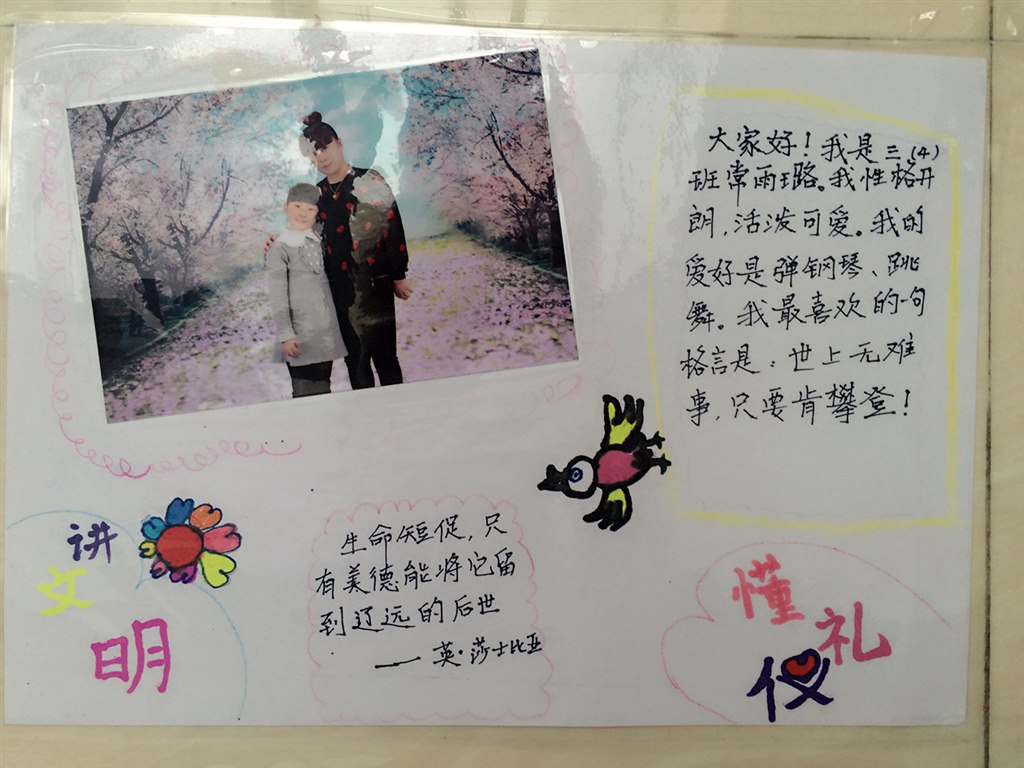 大家好！我是三.（4）
班常雨璐。我性格开
朗，活泼可爱。我的
爱好是弹钢琴、跳
舞。我最喜欢的一句
格言是：世上无难
事，只要肯攀登！
生命短促，只
有美德能将它留
到辽远的后世
——英·莎士比亚
讲
文
明
懂
礼
仪